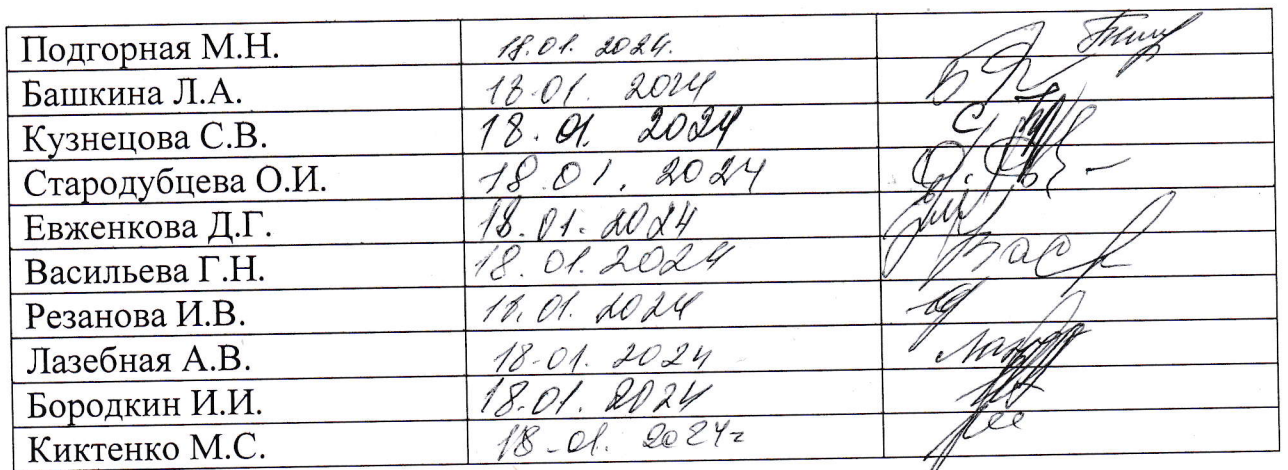 Подгорная М.Н. 18.01.2024.
Башкина Л.А. 18.01.2024
Кузнецова С.В. 18.01.2024
Стародубцева О.И. 18.01.2024
Евженкова Д.Г. 18.01.2024
Васильева Г.Н. 18.01.2024
Резанова И.В. 18.01.2024
Лазебная А.В. 18.01.2024
Бородкин И.И. 18.01.2024
Киктенко М.С. 18.01.2024г